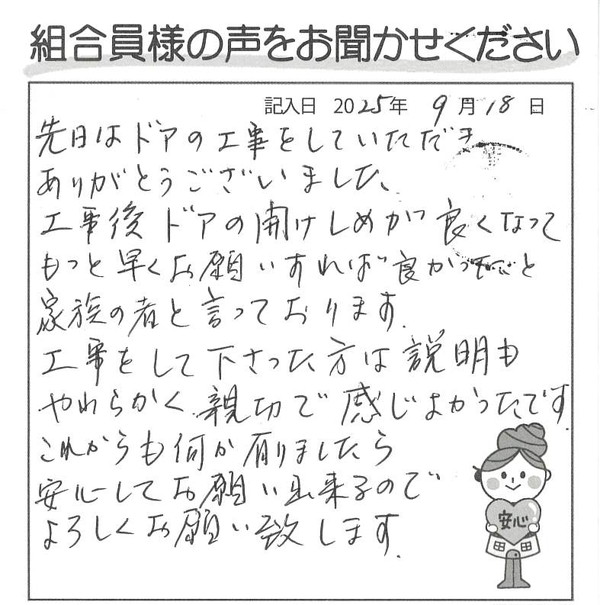 組合員様の声をお聞かせください
記入日 2025年 9月18日
先日はドアの工事をしていただき
ありがとうございました、
工事後ドアの開けしめが良くなって
もっと早くお願いすれば良かったと
家族の者と言っております.
工事をして下さった方は説明も
やわらかく親切で感じよかったです.
これからも何か有りましたら
安心してお願い出来るので
よろしくお願い致します.
安心